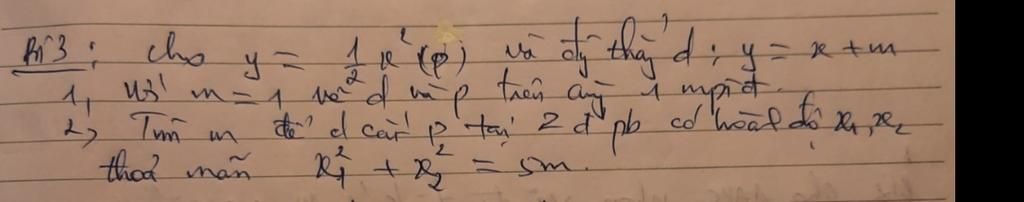 Bài 3: Cho y = 1/2 x² (P) và đg thẳg d: y = x + m
1, Với m = 1 vẽ d và P trên cùng 1 mp tđ.
2, Tìm m để d cắt P tại 2 đ pb có hoàh độ x₁, x₂
thoả mãn x₁² + x₂² = 5m.